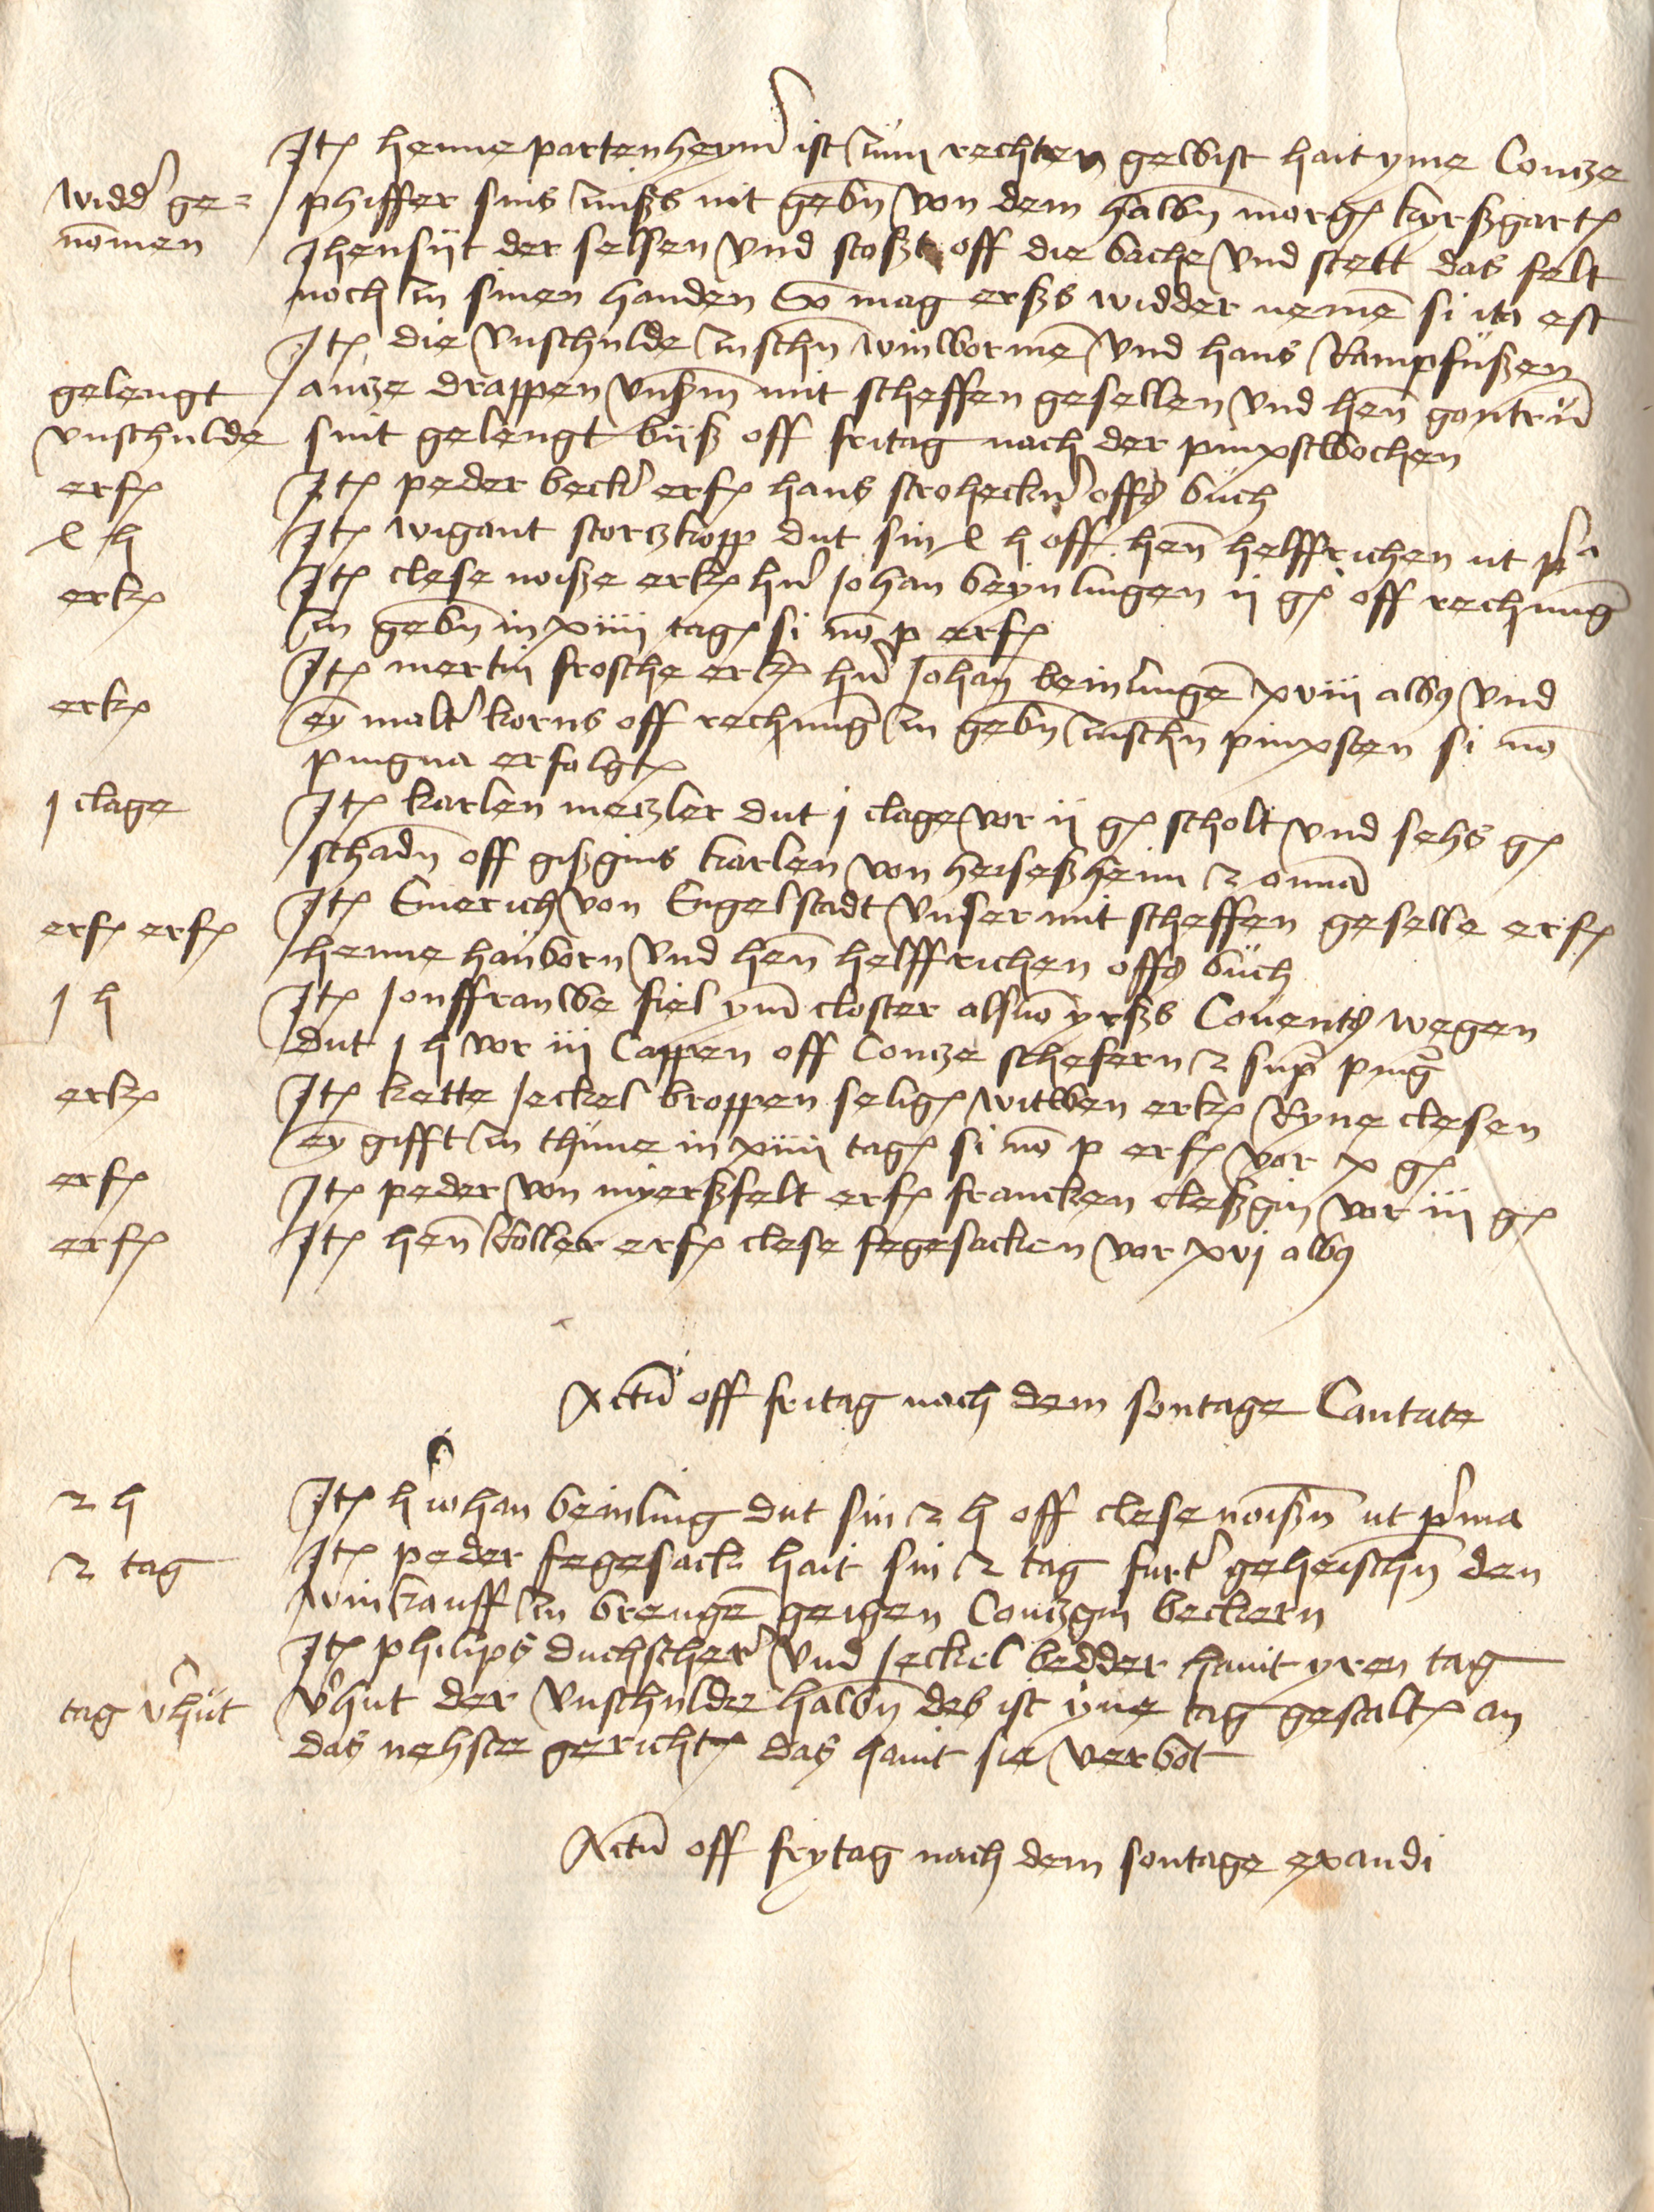 Itē henne partenheymˀ ist zum rechten gewist hait yme Contze
widdˀ ge= phiffer sins zinßs nit gebn̄ von dem halbn̄ morgē kyrßgartē
nomen Jhensijt der selsen vnd stoßt off die bache vnd stett das felt
noch in sinen handen So mag erßs widder nemē si ita est
Itē die vnschulde zuschn̄ winworme vnd hans Rampfußen
gelengt antze drappen vnßm̄ mit scheffen gesellen vnd hen̄ gontrūm
vnschulde sint gelengt bijß off fritag nach der pinxstwochen
erfē Itē peder beckˀ erfē hans stroheckˀ offs buch
l h Itē wigant stortzkopp dut sin l h off hen̄ helffrichen ut pͬᵃ
erkē Itē clese noiße erkē hˀn Johan beynlingen ij gē off rechnung
zu gebn̄ in xiiij tagē si nō p erfē
erkē Itē mertin frosche erkē hˀn Johan beinlingē xviij albꝯ vnd
ey maltˀ korns off rechnung zu gebn̄ zuschn̄ pinxsten si nō
pingna erfolgtē
j clage Itē karlen metzler dut j clage vor ij gē scholt vnd sehs gē
schadn̄ off gißgins karlen von heiseßheim z omīa
erfē erfē Itē Emerich von Engelstadt vnser mit scheffen geselle erfē
henne hanborn vnd hen̄ helffrichen offs buch
j h Itē Jonffrauwe fiel ym closter als vō yrßs Couents wegen
dut j h vor iij Cappen off Contze schefern z suꝑ pinḡ
erkē Itē kette Jeckel droppen seligē witwen erkē Ryne clesen
ey gifft zu thune in xiiij tagē si nō p erfē vor x gē
erfē Itē peder von myerßfelt erfē francken cleßgin vor iij gē
erfē Itē hen̄ koller erfē clese fegesacken vor xvj albꝯ
Actū off fritag nach dem sontage Cantate
2 h Itē hˀ Johan beinling dut sin 2 h off clese noißn̄ ut pˀma
2 tag Itē peder fegesack hait sin 2 tag furtˀ geheischn̄ den
winkauff zu brengē geigen Contzgin beckern
Itē philips duchscherˀ vnd Jeckel bedder hant yren tag
tag vˀhut vˀhut der vnschulde halbn̄ des ist yne tag gestaltē an
das nehste gerichtē das hant sie verbot
Actū off frytag nach dem sontage exaudi